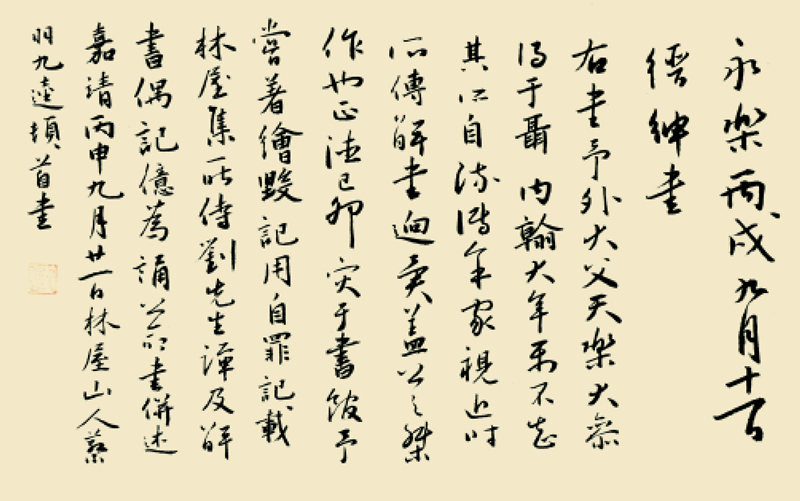 永樂丙戌九月十一日
縉紳書
右書予外大父天樂大參
得于聶内翰大年不知
其所自流家視近时
所傳解書迥異蓋公之傑
作也正德己卯灾于書館予
嘗著繪毀記用自罪記載
林屋集昨侍劉先生譚及解
書偶記憶為誦公前書併述
嘉靖丙申九月廿一日林屋山人蔡
羽九逵頓首書